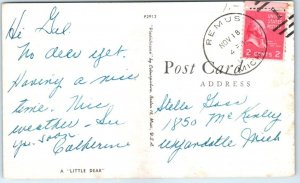 P2912
Hi Gal
No deer yet.
Having a nice
time. Nice
weather - See
you soon
Catherine
A "LITTLE DEAR"
REMUS
NOV 18
MICH
2 CENTS 2
Post Card
ADDRESS
Stella
1850 McKinley
Wyandotte Mich